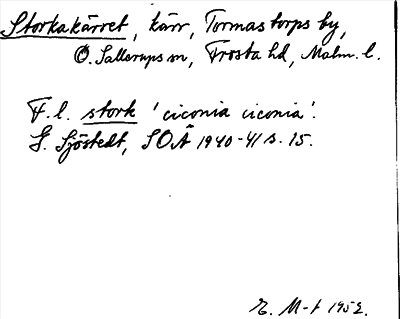 Storkakärret, kärr, Tormastorps by,
Ö. Sallerups sn, Frosta hd, Malm. l.
F. l. stork 'ciconia ciconia'.
G. Sjöstedt, SOÅ 1940-41 s. 15.
1952.